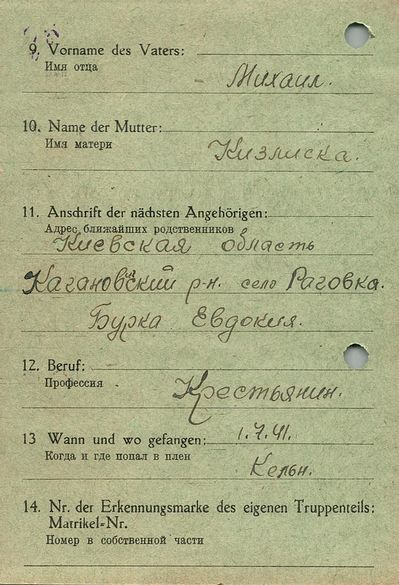 9. Vorname des Vaters:
Имя отца
Михаил.
10. Name der Mutter:
Имя матери
Кизлиска.
11. Anschrift der nächsten Angehörigen:
Адрес ближайших родственников
Киевская область
Кагановичский р-н. село Раговка.
Бурка Евдокия.
12. Beruf:
Профессия
Крестьянин.
13 Wann und wo gefangen: 1.7.41.
Когда и где попал в плен
Кельн.
14. Nr. der Erkennungsmarke des eigenen Truppenteils:
Matrikel-Nr.
Номер в собственной части